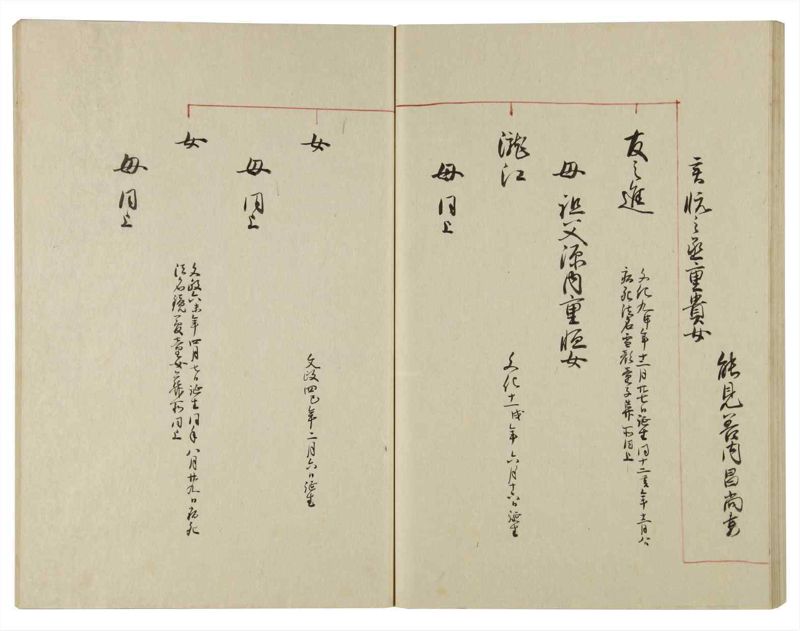 能見善内昌尚妻
友之進
文化九申年十一月廿七日誕生同十二亥年十二月八
病死法名雪影童子葬所同上
母 祖父源内重恒女
瀧江
文化十一戌年六月十六日誕生
母 同上
女
文政四巳年二月六日誕生
母 同上
女
文政六未年四月七日誕生同年八月廿九日病死
法名 童女葬所同上
母 同上